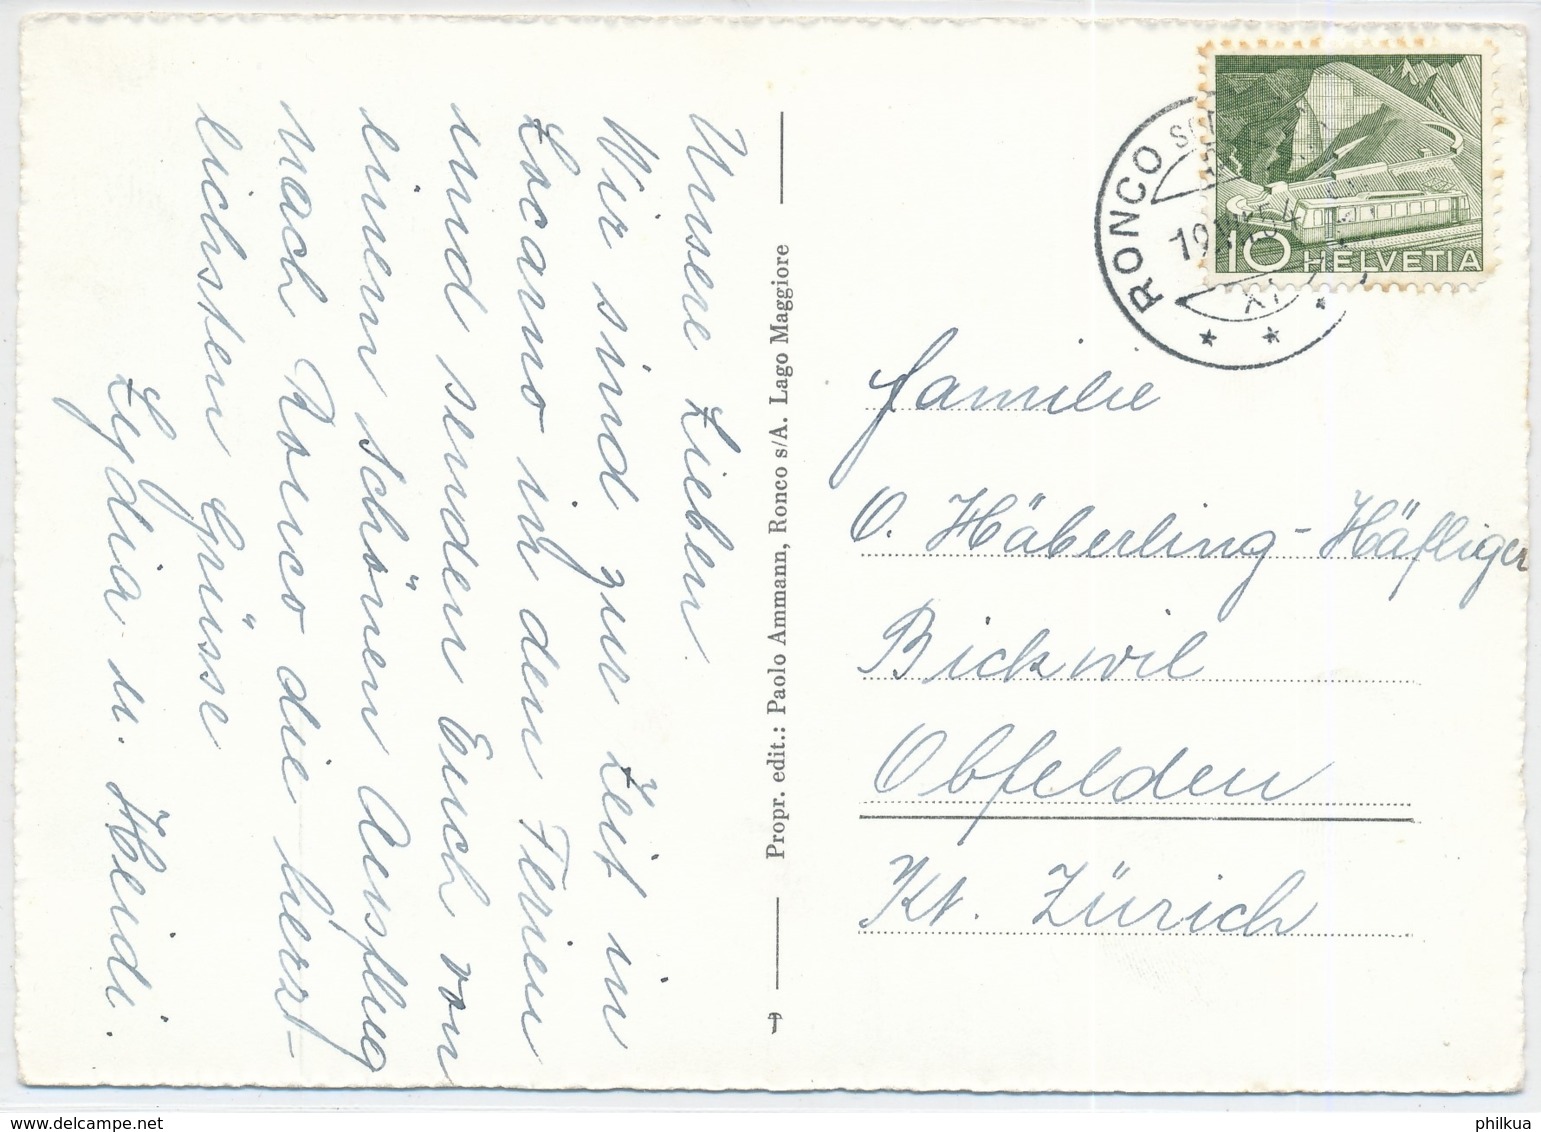 Unsere Lieben.
Wir sind zur Zeit in
Locarno in den Ferien
und senden Euch von
einem schönen Ausflug
nach Ronco die herz-
lichsten Grüsse
Lydia u. Heidi.
Propr. edit.: Paolo Ammann, Ronco s/A. Lago Maggiore
RONCO
XI
10 HELVETIA
Familie
O. Häberling-Häfliger
Bickwil
Obfelden
Kt. Zürich
www.delcampe.net
philkua